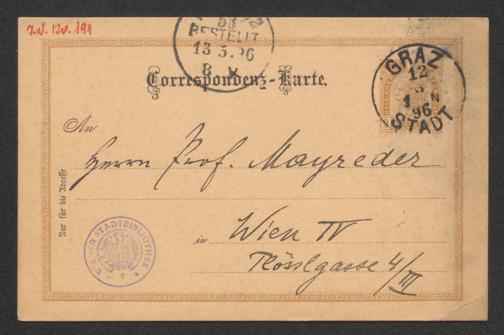 J.N. 120.194
53
BESTELLT
13.5.96
8. V
GRAZ
12
5
1 N
96
STADT
Correspondenz-Karte.
An
Herrn Prof. Mayreder
in Wien IV
Plösslgasse 4/III
Nur für die Adresse
WIENER STADTBIBLIOTHEK